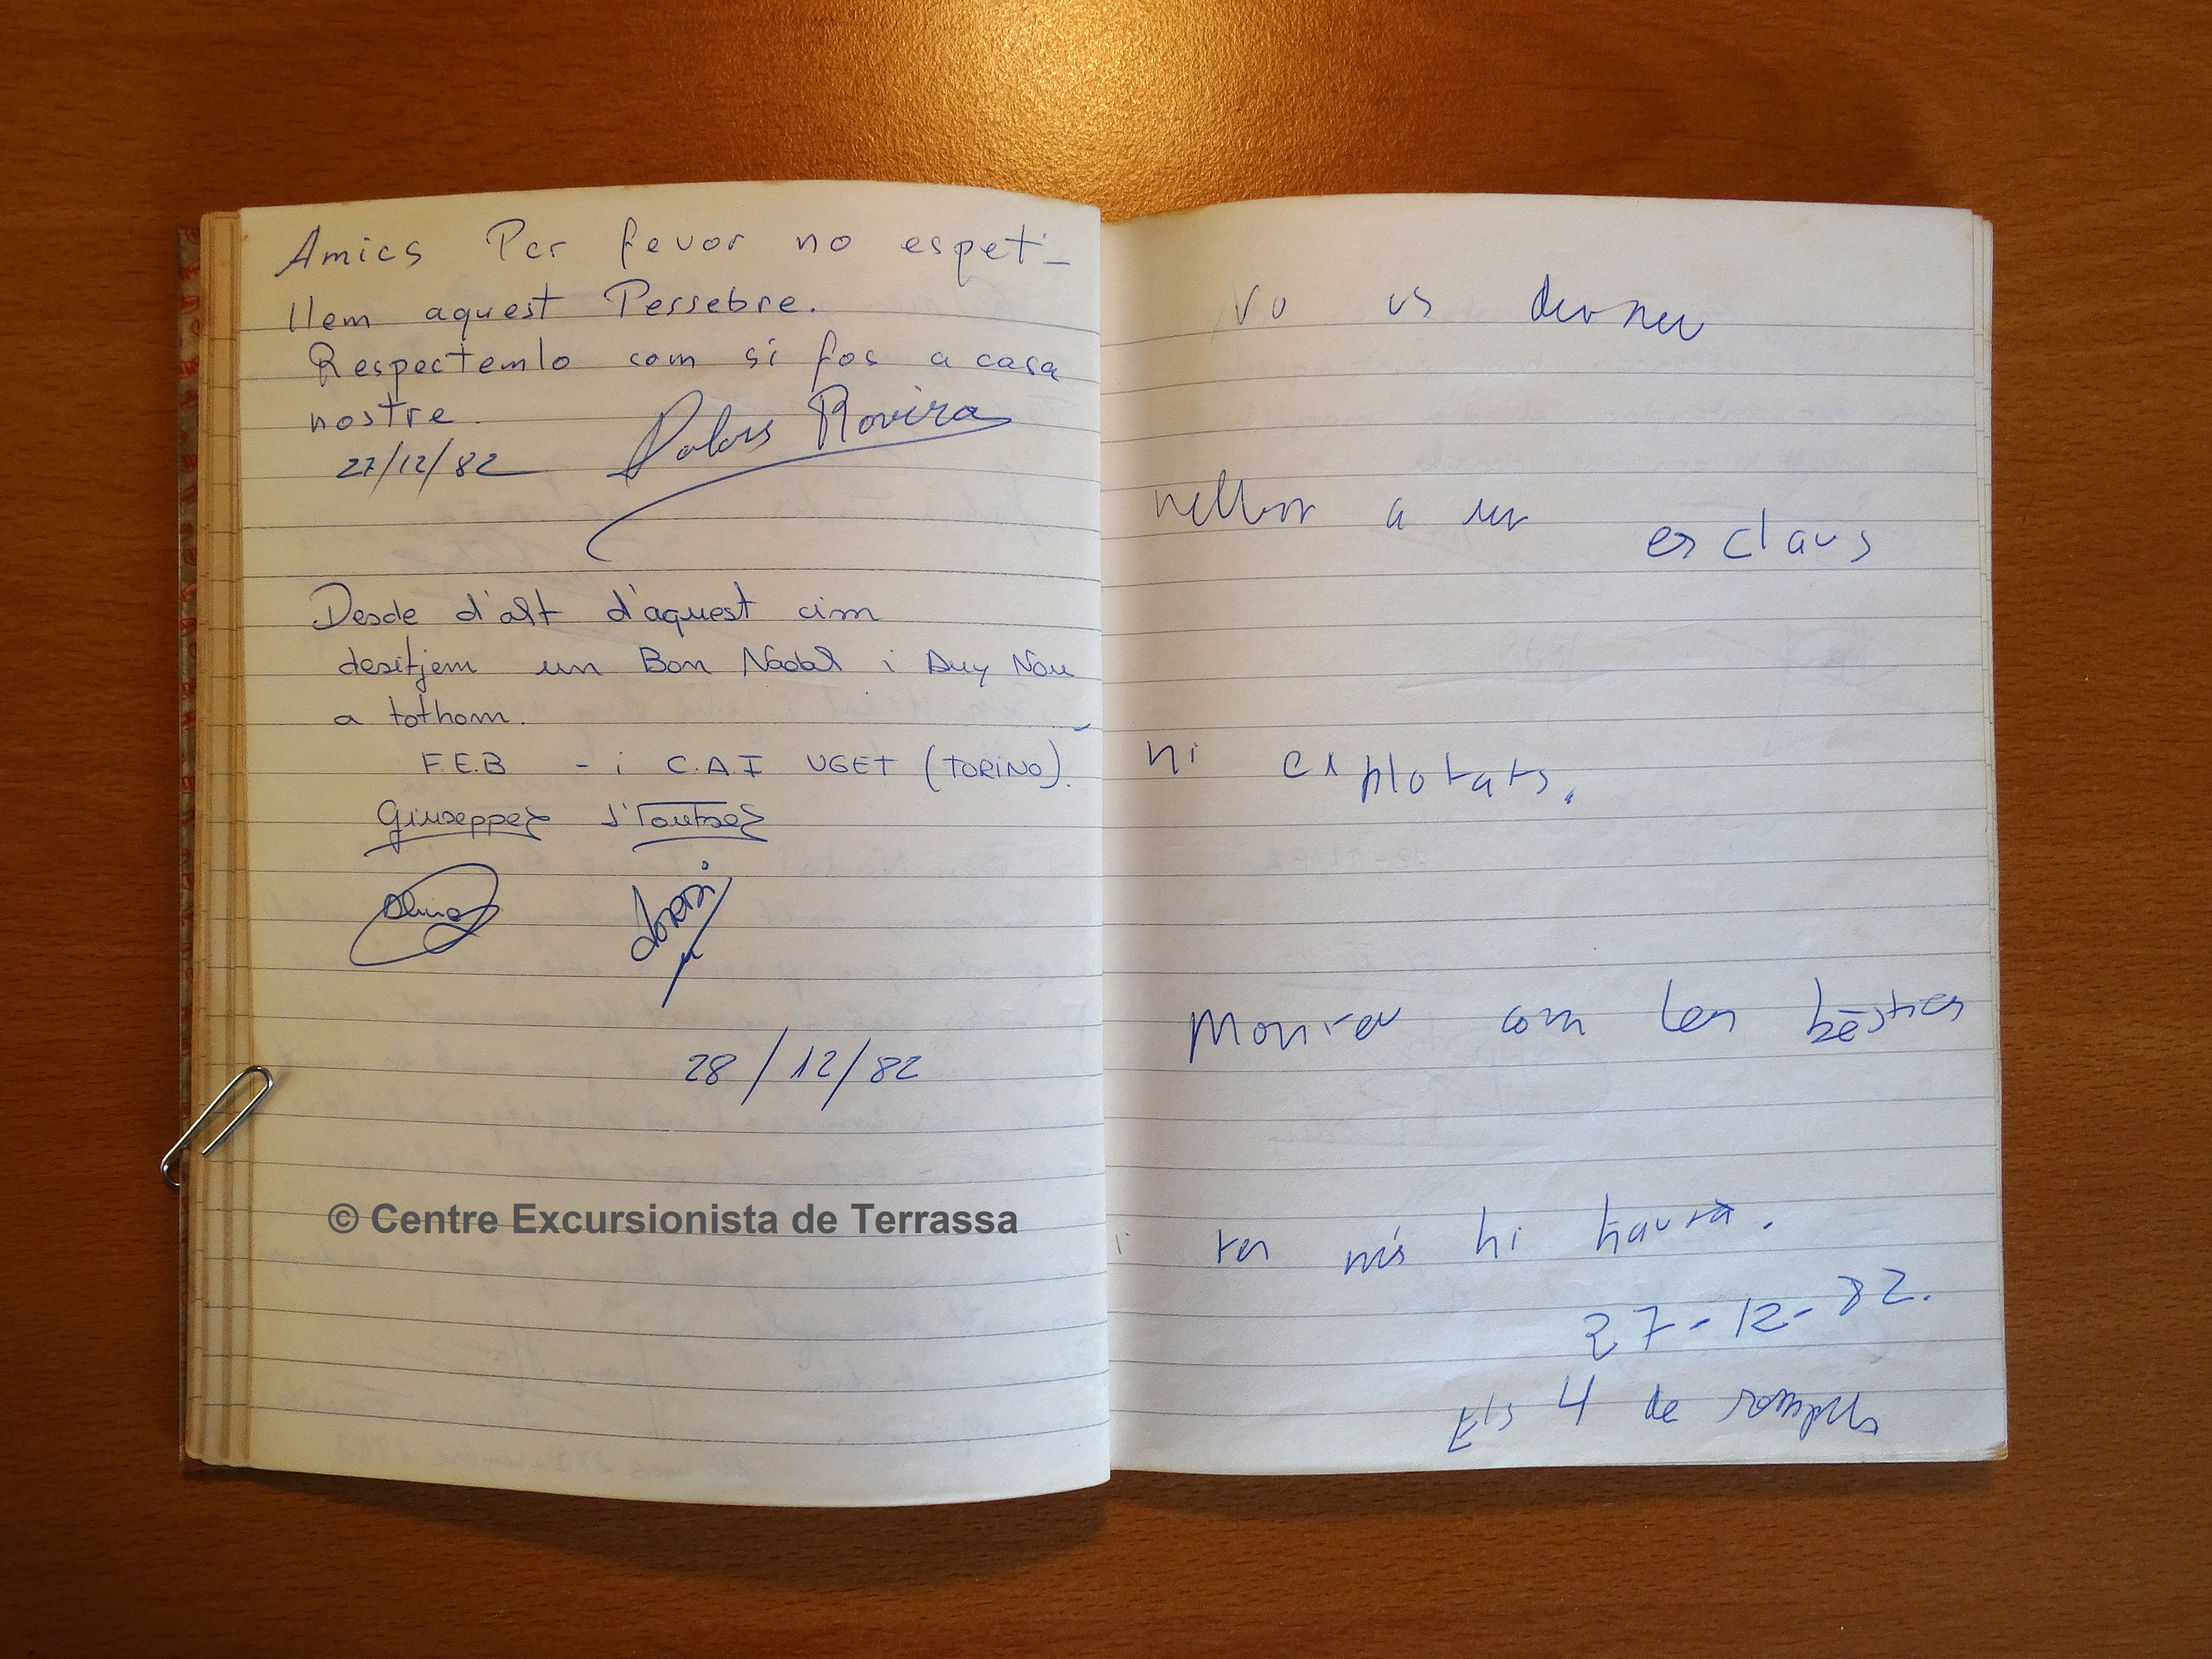 Amics Per fevor no espet-
llem aquest Pessebre.
Respectemlo com si fos a casa
nostre.
27/12/82 Dolors Rovira
Desde d'alt d'aquest cim
desitjem un Bon Nadal i Any Nou
a tothom.
F.E.B - i C.A.I UGET (TORINO).
Giuseppe
28/12/82
© Centre Excursionista de Terrassa
us
a ser esclaus
ni explotats.
com les bèsties
i res més hi haurà.
27-12-82.
Els 4 de